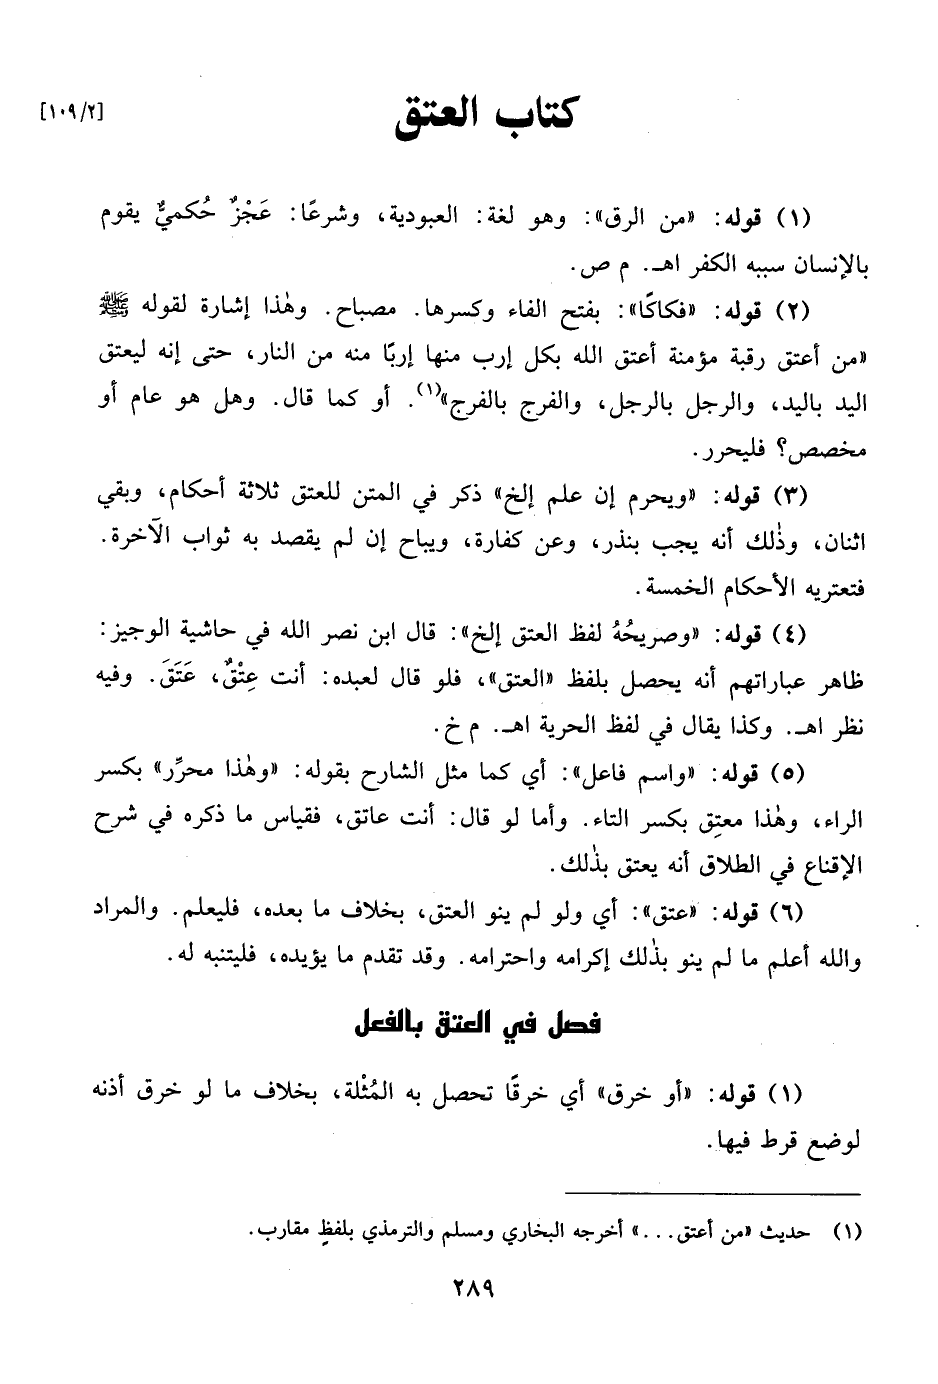 [١٠٩/٢]
كتاب العتق
(١) قوله: «من الرق»: وهو لغة: العبودية، وشرعًا: عَجْزٌ حُكميٌّ يقوم
بالإنسان سببه الكفر اهـ. م ص.
(٢) قوله: «فكاكًا»: بفتح الفاء وكسرها. مصباح. وهٰذا إشارة لقوله ﷺ
«من أعتق رقبة مؤمنة أعتق الله بكل إرب منها إربًا منه من النار، حتى إنه ليعتق
اليد باليد، والرجل بالرجل، والفرج بالفرج»(١). أو كما قال. وهل هو عام أو
مخصص؟ فليحرر.
(٣) قوله: «ويحرم إن علم إلخ» ذكر في المتن للعتق ثلاثة أحكام، وبقي
اثنان، وذٰلك أنه يجب بنذر، وعن كفارة، ويباح إن لم يقصد به ثواب الآخرة.
فتعتريه الأحكام الخمسة.
(٤) قوله: «وصريحُهُ لفظ العتق إلخ»: قال ابن نصر الله في حاشية الوجيز:
ظاهر عباراتهم أنه يحصل بلفظ «العتق»، فلو قال لعبده: أنت عِتْقٌ، عَتَقَ. وفيه
نظر اهـ. وكذا يقال في لفظ الحرية اهـ. م خ.
(٥) قوله: «واسم فاعل»: أي كما مثل الشارح بقوله: «وهٰذا محرِّر» بكسر
الراء، وهٰذا معتِق بكسر التاء. وأما لو قال: أنت عاتق، فقياس ما ذكره في شرح
الإقناع في الطلاق أنه يعتق بذٰلك.
(٦) قوله: «عتق»: أي ولو لم ينو العتق، بخلاف ما بعده، فليعلم. والمراد
والله أعلم ما لم ينو بذٰلك إكرامه واحترامه. وقد تقدم ما يؤيده، فليتنبه له.
فصل في العتق بالفعل
(١) قوله: «أو خرق» أي خرقًا تحصل به المُثْلة، بخلاف ما لو خرق أذنه
لوضع قرط فيها.
(١) حديث «من أعتق...» أخرجه البخاري ومسلم والترمذي بلفظٍ مقارب.
٢٨٩